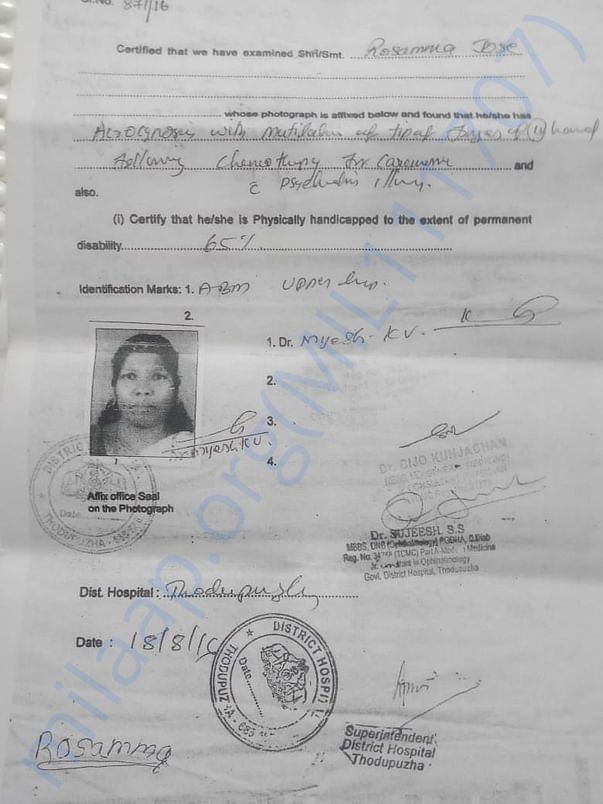 Sl.No. 871/16
Certified that we have examined Shri/Smt. Rosamma Jose
whose photograph is affixed below and found that he/she has
with of of hand
following Chemotherapy for Carcinoma and
also. c illness.
(i) Certify that he/she is Physically handicapped to the extent of permanent
disability 65%
Identification Marks: 1. upper lip.
2.
1. Dr. K V.
2.
3.
4.
K V.
Dr. CIJO KUNJACHAN
Affix office Seal
on the Photograph
DISTRICT
THODUPUZHA
Date
Dr. SUJEESH. S.S
MBBS, DNB (Ophthalmology) PGDHA, D.Diab
Reg. No. (TCMC) Medicine
Jr. Consultant in Ophthalmology
Govt. District Hospital, Thodupuzha
Dist. Hospital : Thodupuzha
Date : 18/8/16
DISTRICT HOSPITAL
THODUPUZHA
Date
Superintendent
District Hospital
Thodupuzha
Rosamma
milaap.org(MIL111707)